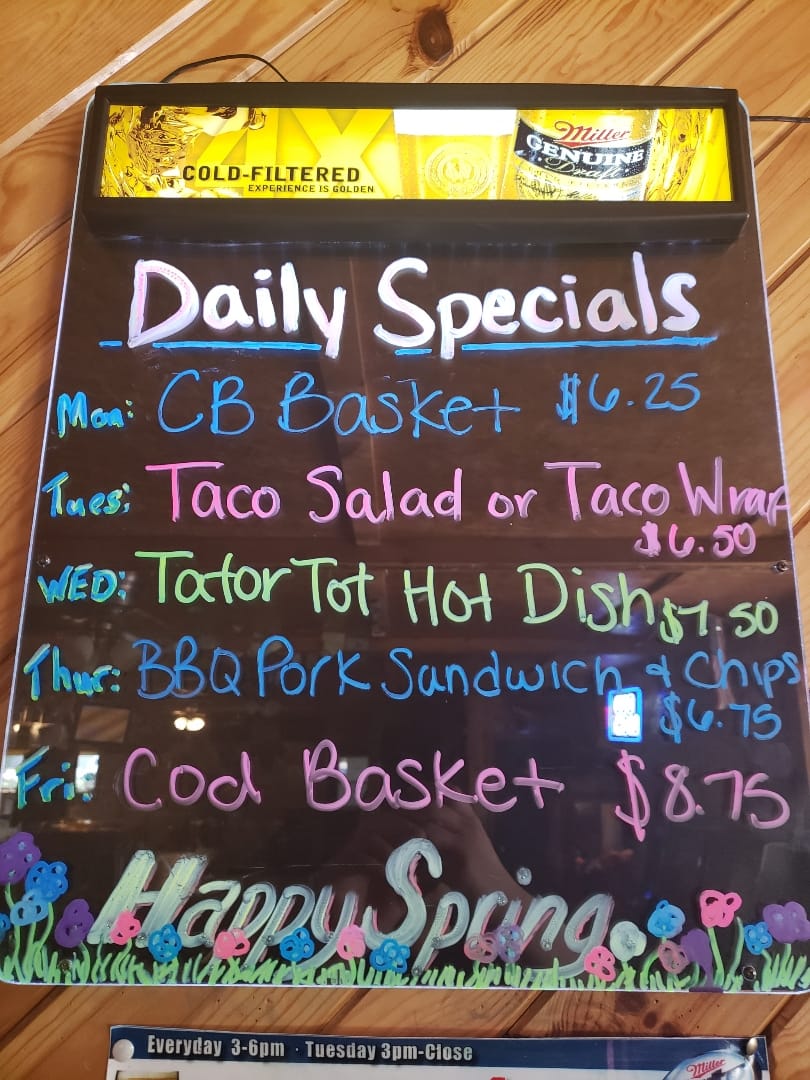 COLD-FILTERED
EXPERIENCE IS GOLDEN
Miller
GENUINE
Draft
Daily Specials
Mon: CB Basket $6.25
Tues: Taco Salad or Taco Wrap
$6.50
WED: Tator Tot Hot Dish $7.50
Thur: BBQ Pork Sandwich & Chips
$6.75
Fri: Cod Basket $8.75
Happy Spring
Everyday 3-6pm · Tuesday 3pm-Close
Miller